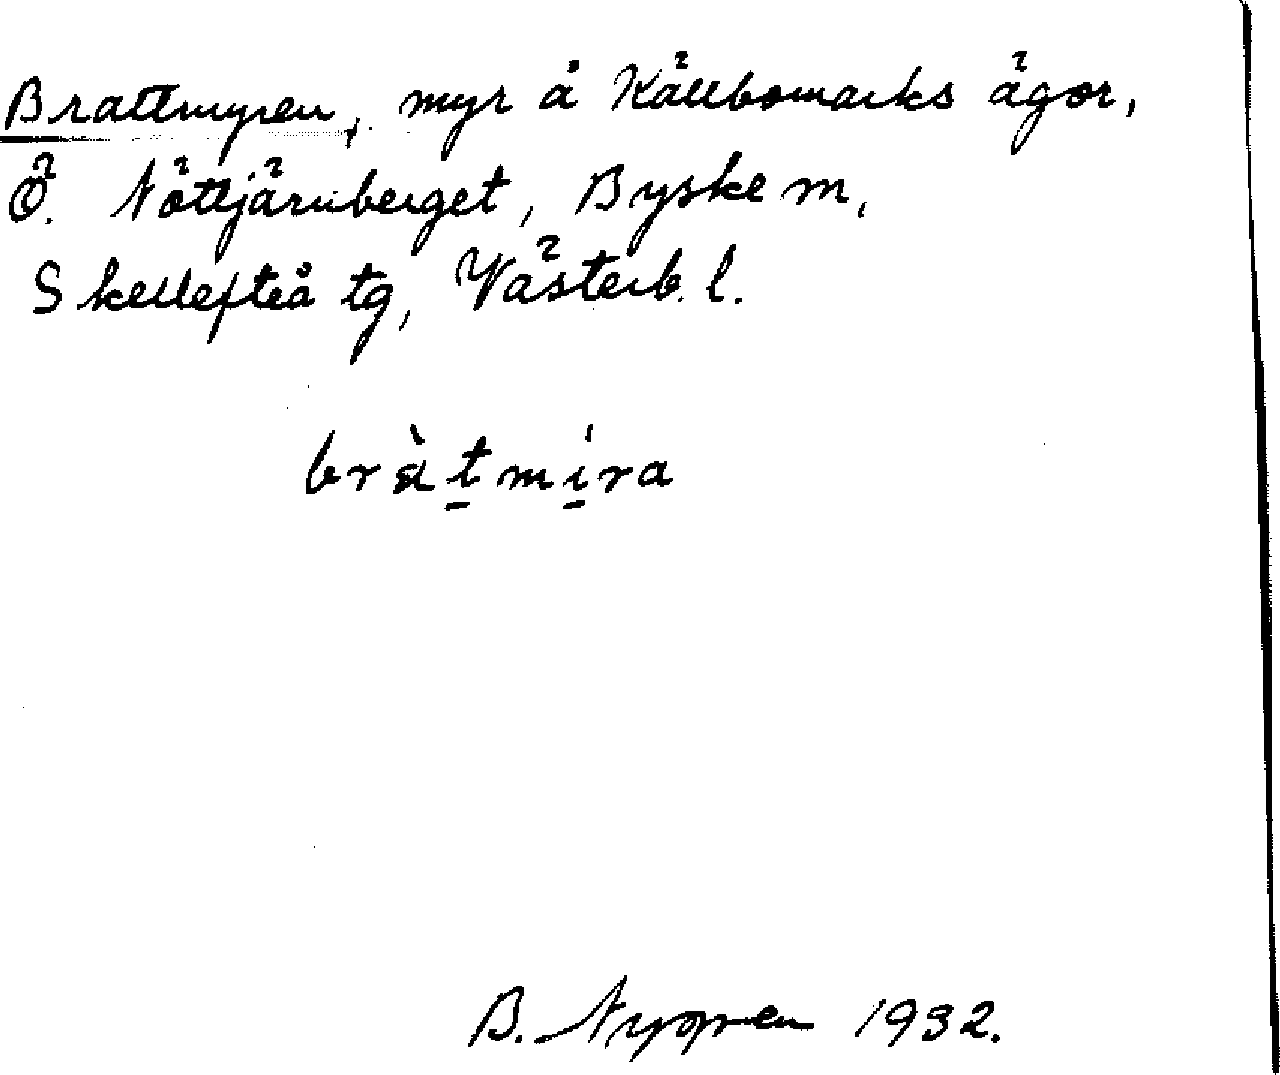 Brattmyren, myr å Källbomarks ägor,
Ö. Nöttjärnberget, Byske sn,
Skellefteå tg, Västerb. l.
bràtmíra
B. Nygren 1932.